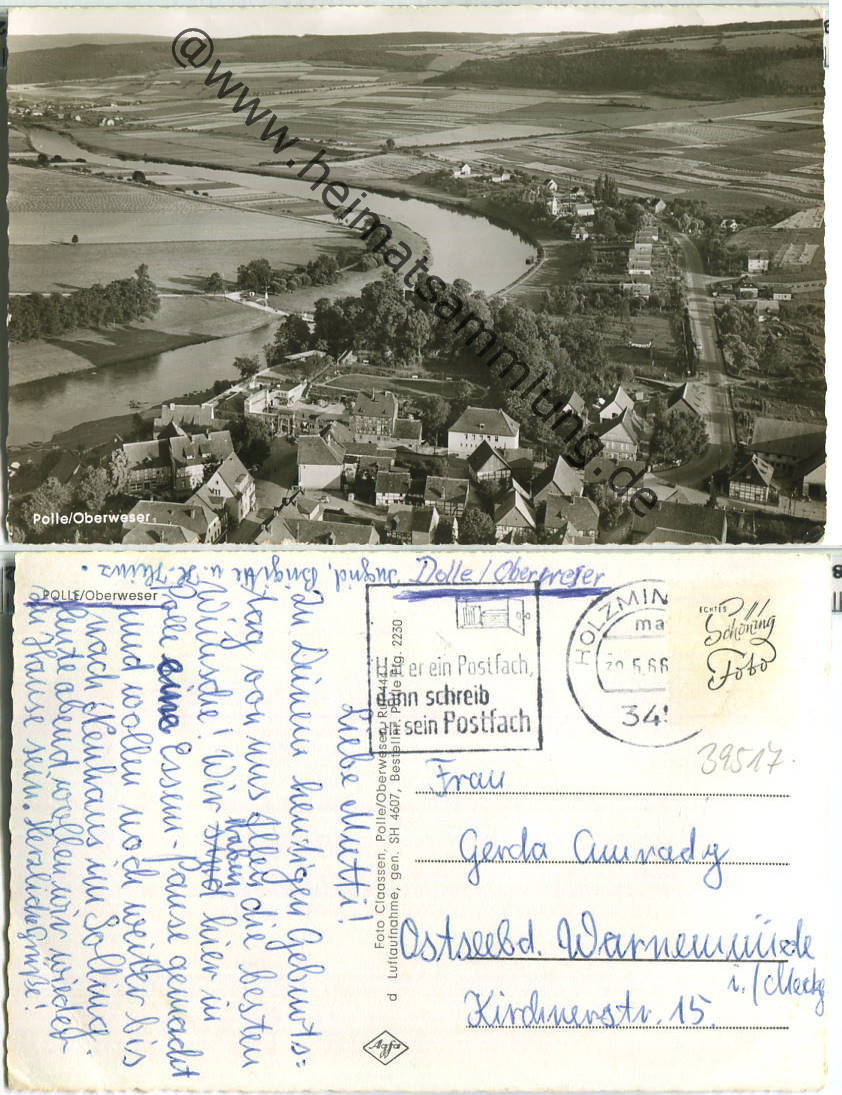 @www.heimatsammlung.de
Polle/Oberweser
POLLE/Oberweser
Polle/Oberweser
Liebe Mutti!
Zu Deinem heutigen Geburts=
tag von uns Allen die besten
Wünsche! Wir haben hier in
Polle eine Essen-Pause gemacht
und wollen noch weiter bis
nach Neuhaus im Solling.
Heute abend wollen wir wieder
zu Hause sein. Herzliche Grüße!
Ingrid, Brigitte u. K.-Heinz.
Foto Claassen, Polle/Oberweser, Ruf 444
d Luftaufnahme, gen. SH 4607, Bestellnr. Polle Lfg. 2230
er ein Postfach,
dann schreib
sein Postfach
HOLZMIN
20.5.66
345
ECHTES
Schöning
Foto
39517
Frau
Gerda Amrady
Ostseebd. Warnemünde
i./Meckg
Kirchnerstr. 15.
Agfa